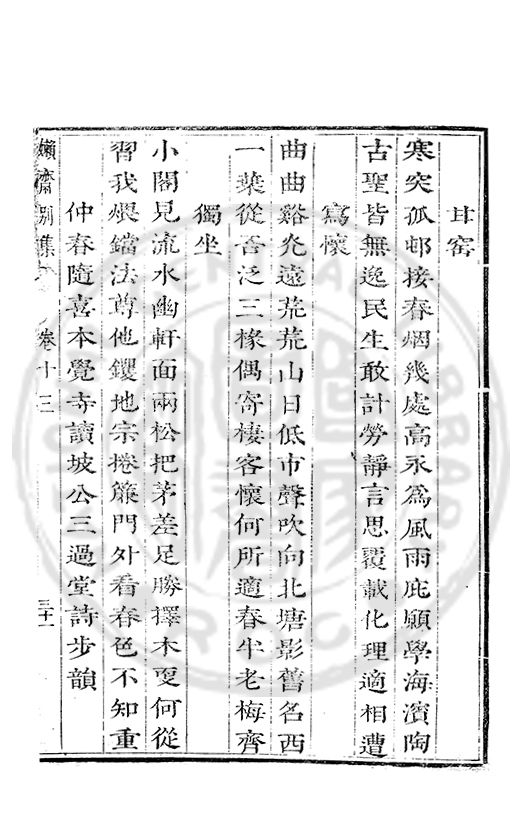 甘窑
寒突孤邨接春烟幾處高永爲風雨庇願學海濱陶
古聖皆無逸民生敢計勞靜言思覆載化理適相遭
寫懷
曲曲谿光遠荒荒山日低市聲吹向北塘影舊名西
一葉從吾泛三椽偶寄棲客懷何所適春半老梅齊
獨坐
小閣見流水幽軒面兩松把茅差足勝擇木更何從
習我煨鐺法尊他钁地宗捲簾門外看春色不知重
仲春隨喜本覺寺讀坡公三過堂詩步韻
嬾齋別集 卷十三 三十一